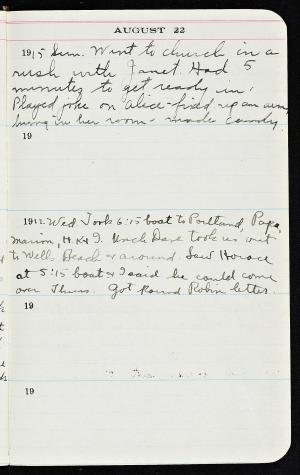 AUGUST 22
1915 Sun. Went to church in a
rush with Janet. Had 5
minutes to get ready in!
Played joke on Alice - fixed up an
hung in her room - made candy.
19
Wed Took 6:15 boat to Portland, Papa,
Marion, H.K & I. Uncle Dave took us out
to Wells Beach & around. Saw Horace
at 5:15 boat & I said he could come
over Thurs. Got Round Robin letter
19
19